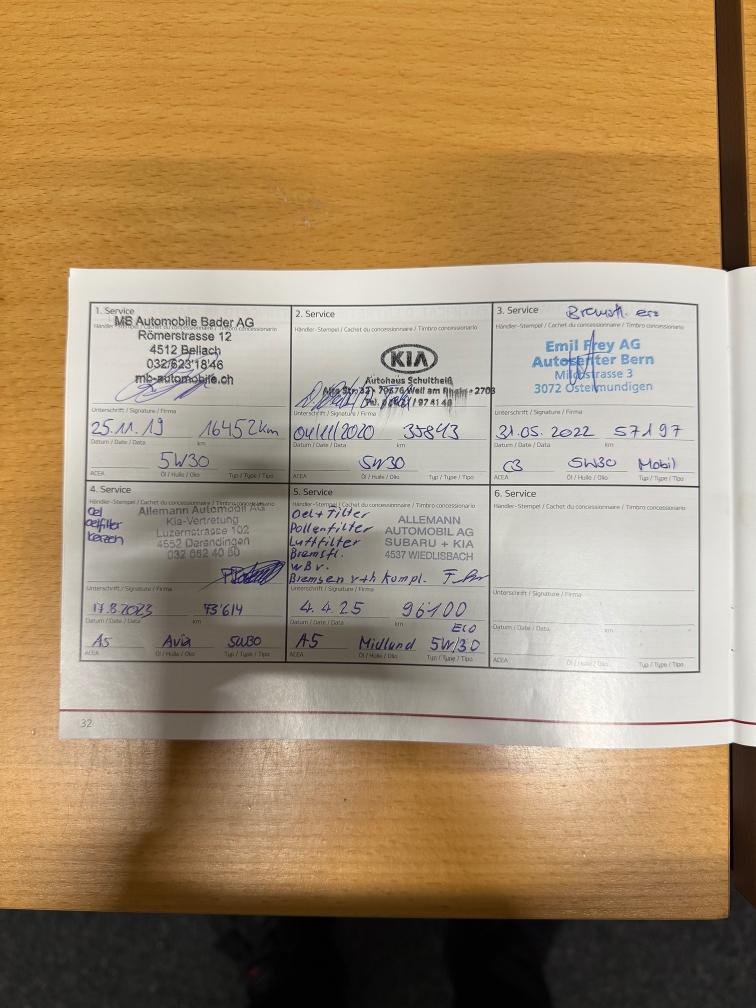 1. Service
Händler-Stempel / Cachet du concessionnaire / Timbro concessionario
MB Automobile Bader AG
Römerstrasse 12
4512 Bellach
032/623'18'46
mb-automobile.ch
Unterschrift / Signature / Firma
25.11.19 16452km
Datum / Date / Data km
5W30
ACEA Öl / Huile / Olio Typ / Type / Tipo
2. Service
Händler-Stempel / Cachet du concessionnaire / Timbro concessionario
KIA
Autohaus Schultheiß
Alte Str. 32 · 79576 Weil am Rhein
Unterschrift / Signature / Firma
04/11/2020 35843
Datum / Date / Data km
5W30
ACEA Öl / Huile / Olio Typ / Type / Tipo
3. Service Bremsfl. ers
Händler-Stempel / Cachet du concessionnaire / Timbro concessionario
Emil Frey AG
Autocenter Bern
Milchstrasse 3
3072 Ostermundigen
Unterschrift / Signature / Firma
31.05.2022 57197
Datum / Date / Data km
C3 5W30 Mobil
ACEA Öl / Huile / Olio Typ / Type / Tipo
4. Service
Händler-Stempel / Cachet du concessionnaire / Timbro concessionario
Oel
oelfilter
kerzen
Allemann Automobil AG
Kia-Vertretung
Luzernstrasse 102
4552 Derendingen
032 682 40 60
Unterschrift / Signature / Firma
17.8.2023 73'614
Datum / Date / Data km
A5 Avia 5W30
ACEA Öl / Huile / Olio Typ / Type / Tipo
5. Service
Händler-Stempel / Cachet du concessionnaire / Timbro concessionario
Oel + Filter
Pollenfilter
Luftfilter
Bremsfl.
WBV.
Bremsen v+h kompl.
ALLEMANN
AUTOMOBIL AG
SUBARU + KIA
4537 WIEDLISBACH
Unterschrift / Signature / Firma
4.4.25 96'100
Datum / Date / Data km
ECO
A5 Midland 5W/30
ACEA Öl / Huile / Olio Typ / Type / Tipo
6. Service
Händler-Stempel / Cachet du concessionnaire / Timbro concessionario
Unterschrift / Signature / Firma
Datum / Date / Data km
ACEA Öl / Huile / Olio Typ / Type / Tipo
32